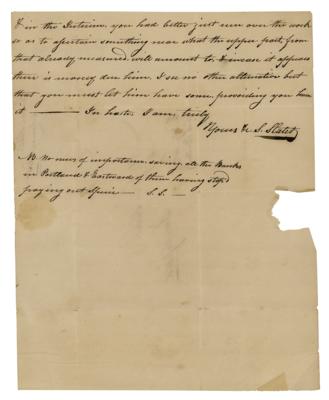 & in the Interim, you had better just run over the work
so as to assertain something near what the upper part, from
that already measured, will amount to & incase it appears
there is money due him, I see no other alternative but
that you must let him have some, providing you have
it —— In haste, I am, truly
Yours &c S. Slater
NB. No news of importance, saving all the Banks
in Portland & Eastward of them having stop'd
paying out Specie — S.S. —